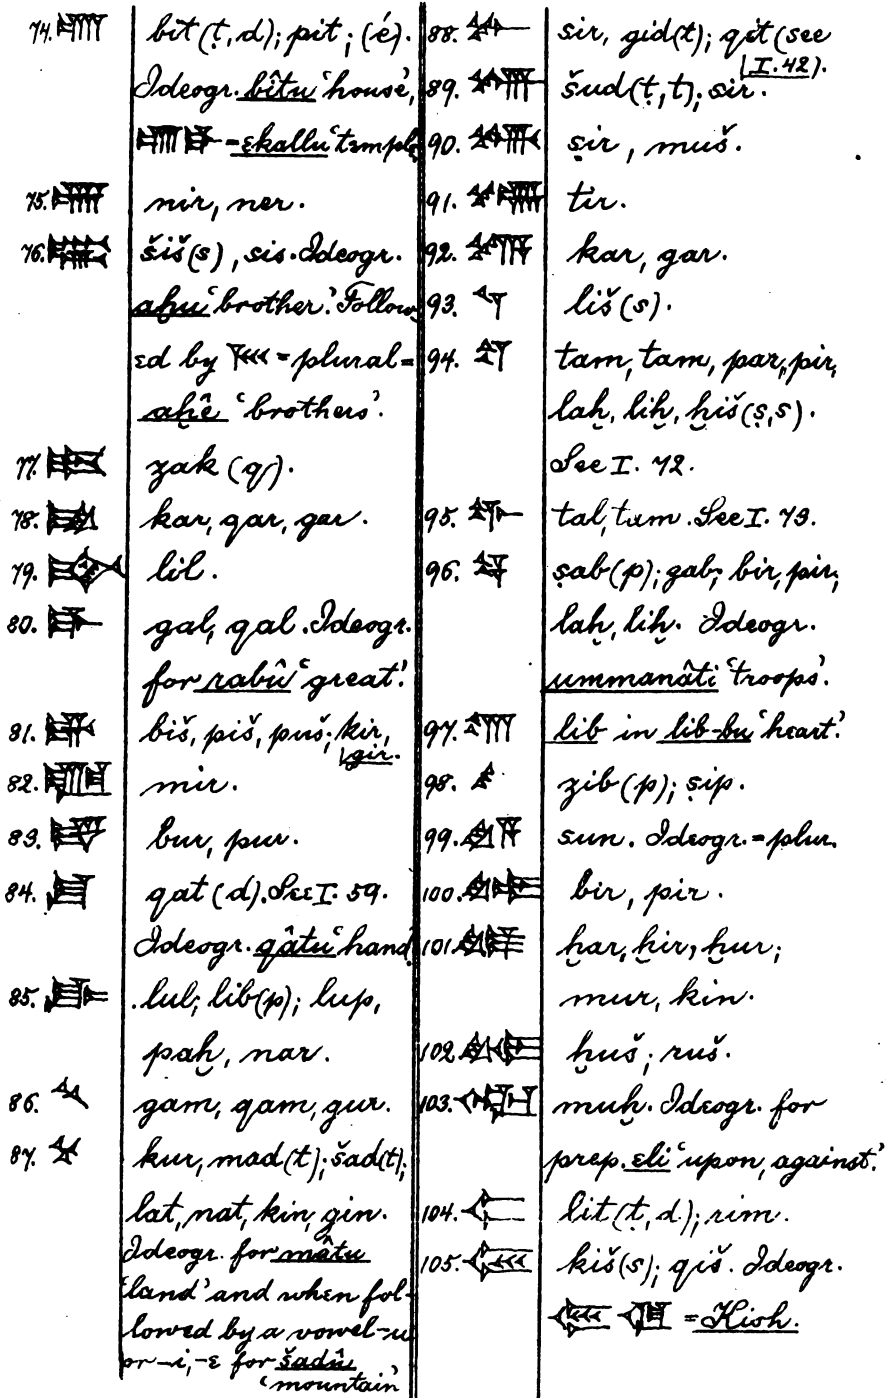 74. 𒂍 bit(ṭ, d); pit; (é).
Ideogr. bîtu ‘house’,
𒂍𒃲 = ekallu ‘temple’
75. nir, ner.
76. šiš(s), sis. Ideogr.
aḫu ‘brother’. Follow-
ed by = plural =
aḫê ‘brothers’.
77. zak (q).
78. kar, qar, gar.
79. lil.
80. 𒃲 gal, qal. Ideogr.
for rabû ‘great’.
81. biš, piš, puš; kir,
gir.
82. mir.
83. bur, pur.
84. qat (d). See I. 59.
Ideogr. qâtu ‘hand’.
85. lul; lib(p); lup,
paḫ, nar.
86. gam, qam, gur.
87. 𒆳 kur, mad(t); šad(t);
lat, nat, kin, gin.
Ideogr. for mâtu
‘land’ and when fol-
lowed by a vowel -u
or -i, -e for šadû
‘mountain’
88. sir, gid(t); qit (see
I. 42).
89. šud(ṭ, t); sir.
90. ṣir, muš.
91. tir.
92. kar, gar.
93. liš (s).
94. tam, tam, par, pir,
laḫ, liḫ, ḫiš(ṣ, s).
See I. 72.
95. tal, tam. See I. 73.
96. ṣab(p); zab; bir, pir;
laḫ, liḫ. Ideogr.
ummanâti ‘troops’.
97. lib in lib-bu ‘heart’.
98. zib (p); ṣip.
99. sun. Ideogr. = plur.
100. bir, pir.
101. ḫar, ḫir, ḫur;
mur, kin.
102. ḫuš; ruš.
103. muḫ. Ideogr. for
prep. eli ‘upon, against’.
104. lit (ṭ, d); rim.
105. kiš(s); qiš. Ideogr.
= Kish.